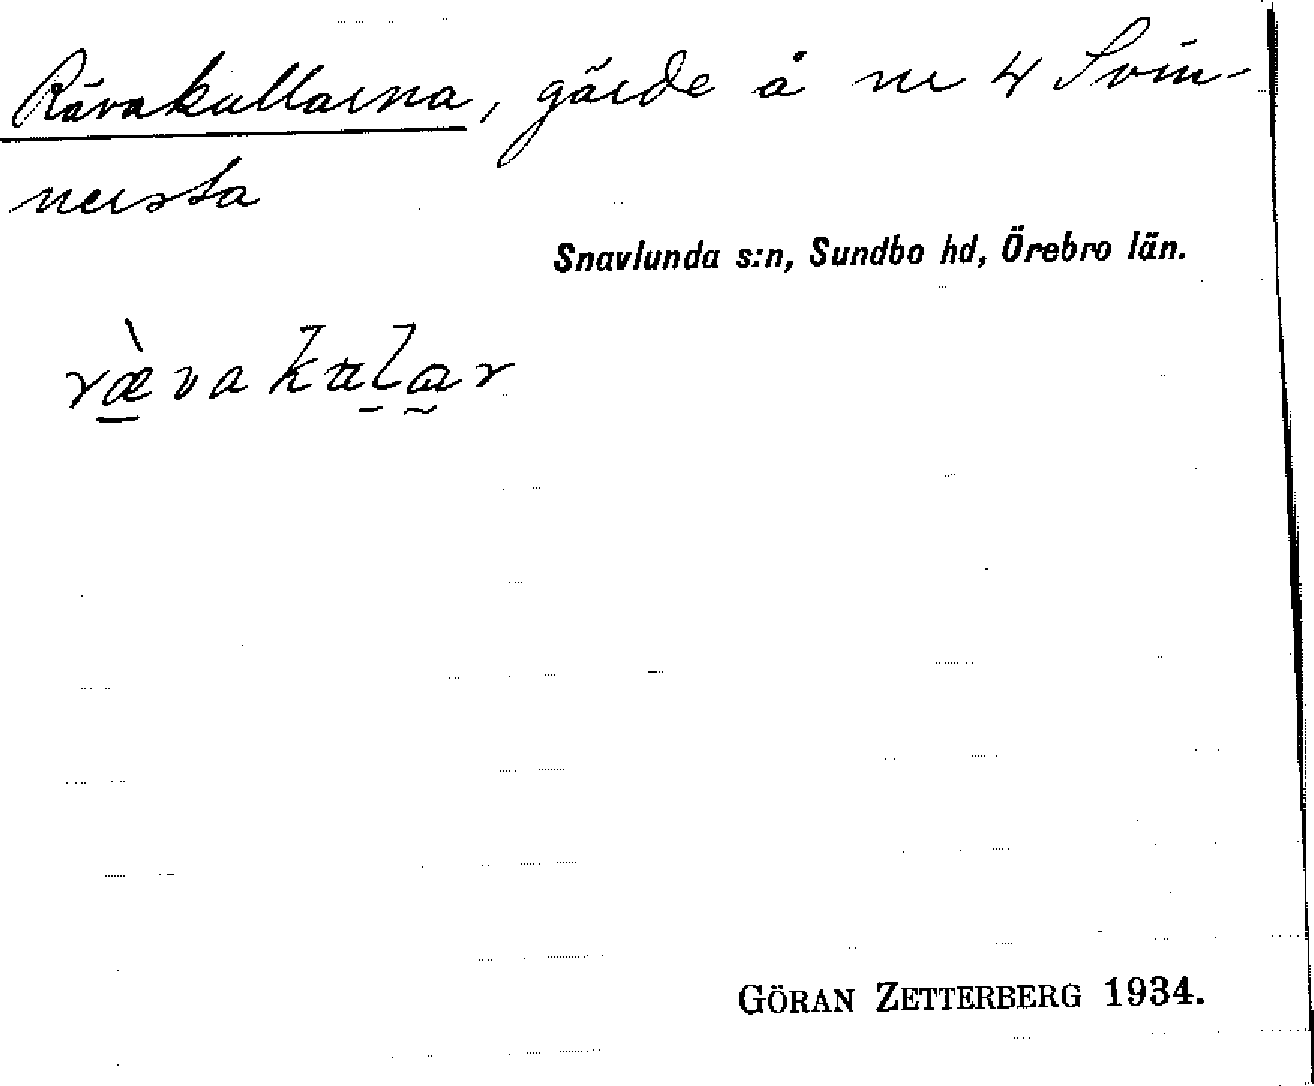 Rävakullarna, gärde å nr 4 Svin-
nersta
Snavlunda s:n, Sundbo hd, Örebro län.
ræ̀vakuḻar
GÖRAN ZETTERBERG 1934.